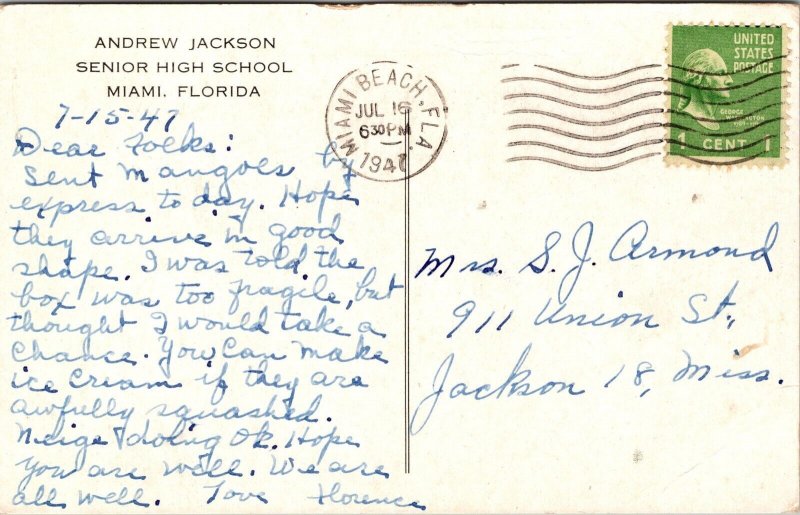 ANDREW JACKSON
SENIOR HIGH SCHOOL
MIAMI, FLORIDA
7-15-47
Dear Folks:
Sent Mangoes by
express today. Hope
they arrive in good
shape. I was told the
box was too fragile, but
thought I would take a
chance. You can make
ice cream if they are
awfully squashed.
doing OK. Hope
you are well. We are
all well. Love Florence
MIAMI BEACH, FLA.
JUL 16
630 PM
1947
UNITED
STATES
POSTAGE
GEORGE
WASHINGTON
1 CENT 1
Mrs. S. J. Armond
911 Union St.,
Jackson 18, Miss.